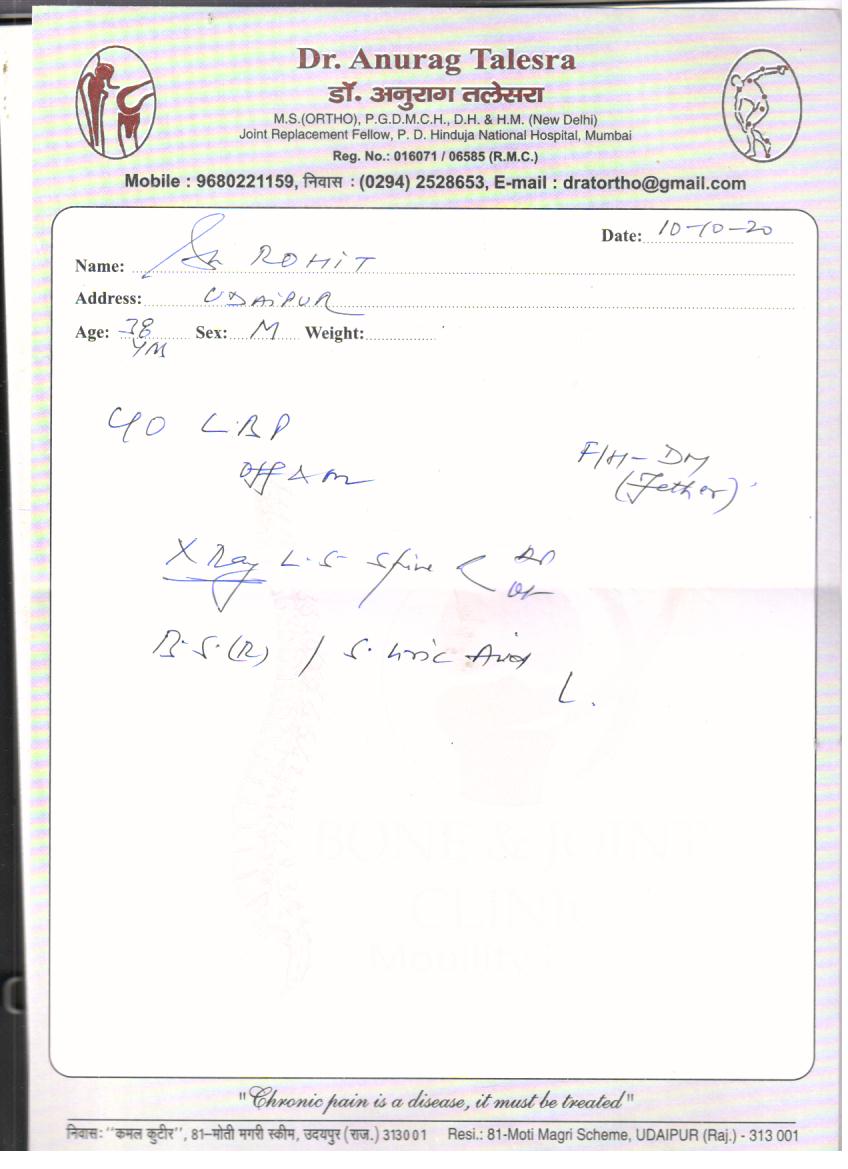 Dr. Anurag Talesra
डॉ. अनुराग तलेसरा
M.S.(ORTHO), P.G.D.M.C.H., D.H. & H.M. (New Delhi)
Joint Replacement Fellow, P. D. Hinduja National Hospital, Mumbai
Reg. No.: 016071 / 06585 (R.M.C.)
Mobile : 9680221159, निवास : (0294) 2528653, E-mail : dratortho@gmail.com
Date: 10-10-20
Name: ROHIT
Address: UDAIPUR
Age: 38 Sex: M Weight:
YM
LBP
F/H- DM
(Father)
X Ray L.S Spine < AP
B.S.(R) / S. Uric Acid
L.
BONE & JOINT
CLINIC
Mobility
"Chronic pain is a disease, it must be treated"
निवासः "कमल कुटीर", 81-मोती मगरी स्कीम, उदयपुर (राज.) 313001 Resi.: 81-Moti Magri Scheme, UDAIPUR (Raj.) - 313 001